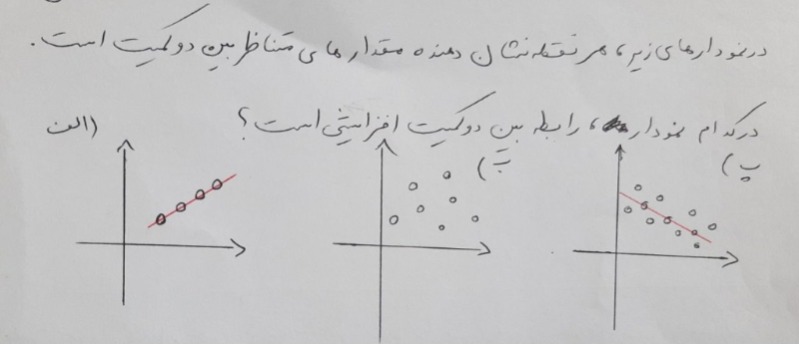 در نمودارهای زیر، هر نقطه نشان دهنده مقدارهای متناظر بین دو کمیت است.
در کدام نمودار، رابطه بین دو کمیت افزایشی است؟
الف)
ب)
پ)